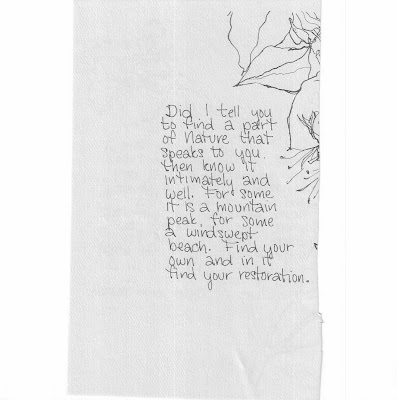 Did I tell you
to find a part
of Nature that
speaks to you,
then know it
intimately and
well. For some
it is a mountain
peak, for some
a windswept
beach. Find your
own and in it
find your restoration.